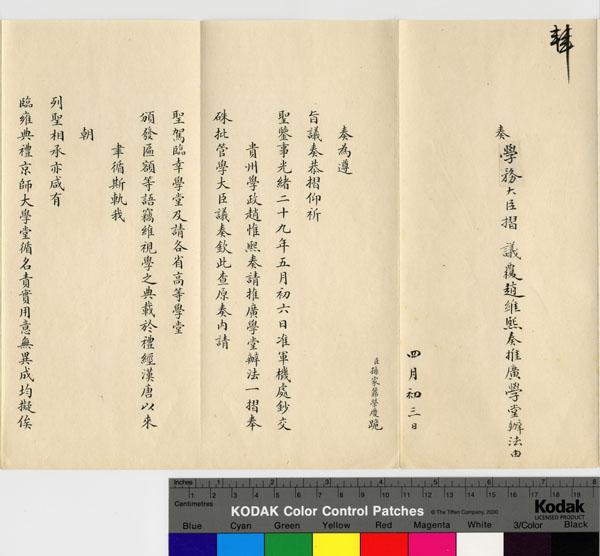 奏
學務大臣摺 議覆趙維熙奏推廣學堂辦法由
四月初三日
臣孫家鼐榮慶跪
奏為遵
旨議奏恭摺仰祈
聖鑒事光緒二十九年五月初六日准軍機處鈔交
貴州學政趙惟熙奏請推廣學堂辦法一摺奉
硃批管學大臣議奏欽此查原奏內請
聖駕臨幸學堂及請各省高等學堂
頒發匾額等語竊維視學之典載於禮經漢唐以來
聿循斯軌我
朝
列聖相承亦咸有
臨雍典禮京師大學堂循名責實用意無異成均擬俟
Inches 1 2 3 4 5 6 7 8
Centimetres 1 2 3 4 5 6 7 8 9 10 11 12 13 14 15 16 17 18 19
KODAK Color Control Patches © The Tiffen Company, 2000 Kodak
LICENSED PRODUCT
Blue Cyan Green Yellow Red Magenta White 3/Color Black